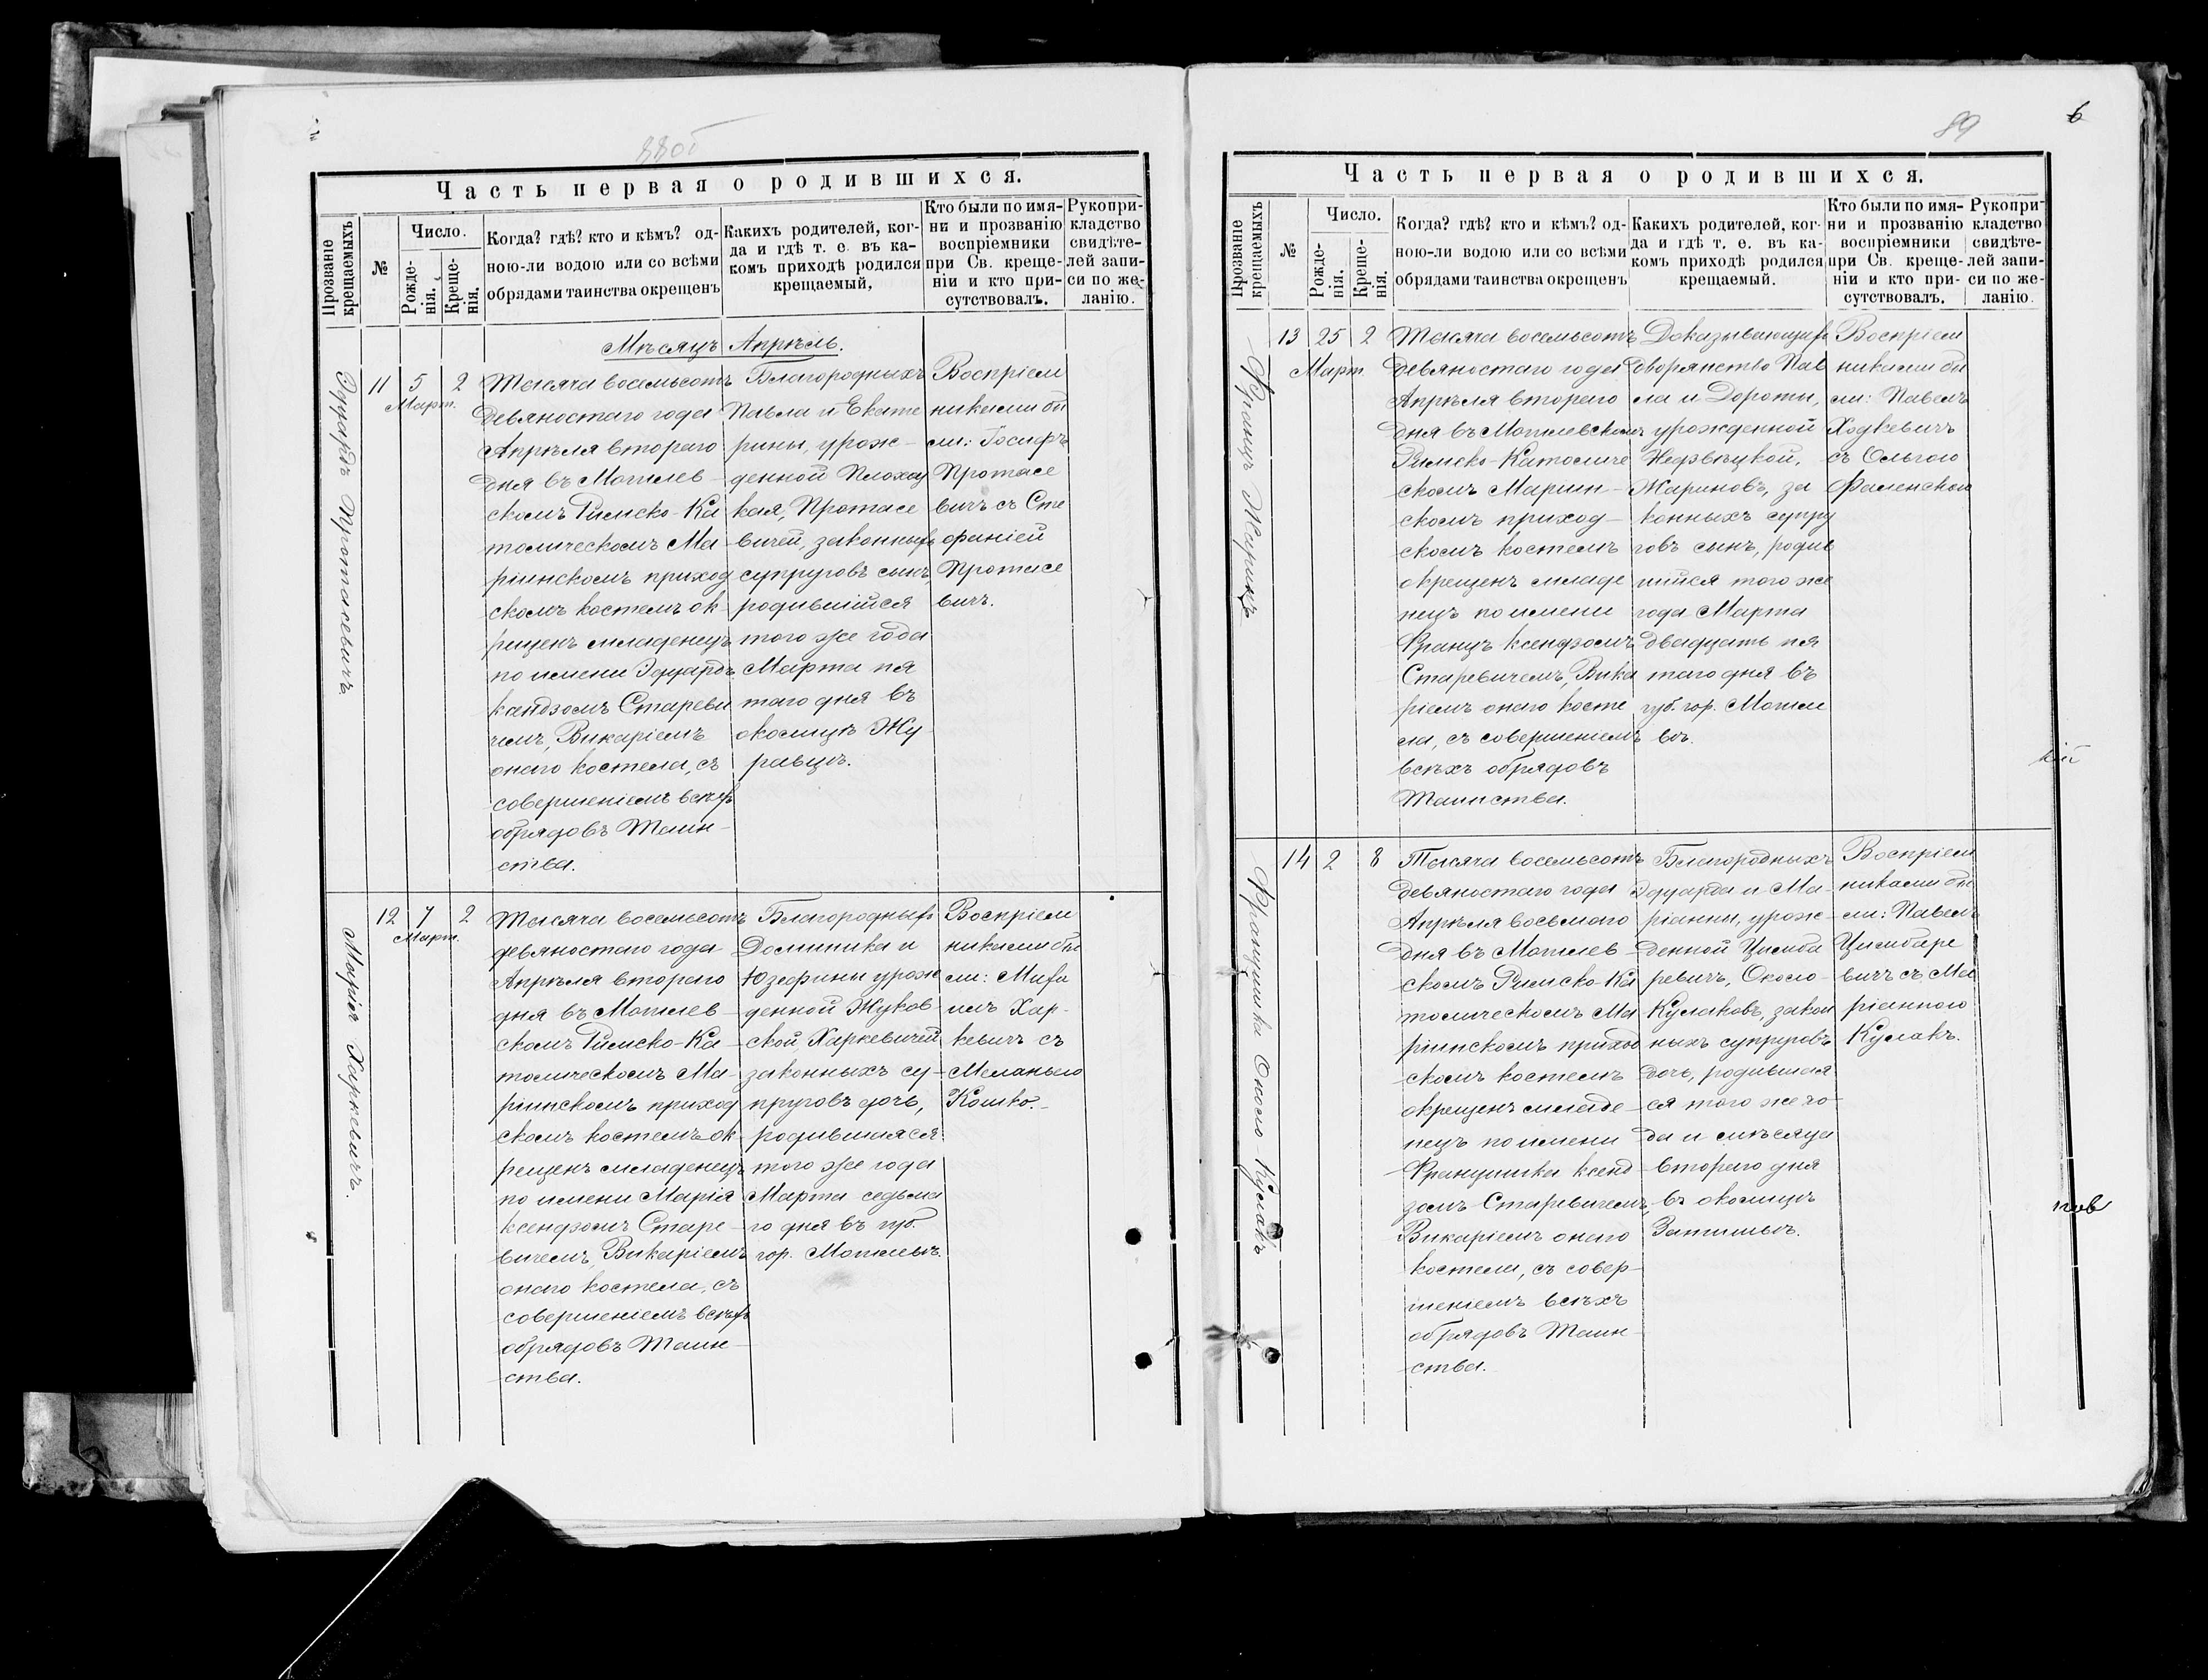 88об
Часть первая о родившихся.
Прозваніе крещаемыхъ
№
Число.
Рожде-
нія.
Креще-
нія.
Когда? гдѣ? кто и кѣмъ? од-
ною-ли водою или со всѣми
обрядами таинства окрещенъ
Какихъ родителей, ког-
да и гдѣ т. е. въ ка-
комъ приходѣ родился
крещаемый,
Кто были по имя-
ни и прозванію
воспріемники
при Св. креще-
ніи и кто при-
сутствовалъ.
Рукопри-
кладство
свидѣте-
лей запи-
си по же-
ланію.
Мѣсяцъ Апрѣль.
Эдуардъ Протасевичъ
11 5 2
Март.
Тысяча восемьсотъ
девяностаго года
Апрѣля втораго
дня въ Могилев-
скомъ Римско-Ка
толическомъ Ма-
ріинскомъ приход
скомъ костелѣ ок-
рещенъ младенецъ
по имени Эдуардъ
ксендзомъ Стареви
чемъ, Викаріемъ
онаго костела, съ
совершеніемъ всѣхъ
обрядовъ Таин-
ства.
Благородныхъ
Павла и Екате
рины, урож-
денной Плохоц
кая, Протасе
вичей, законныхъ
супруговъ сынъ,
родившійся
того же года
Марта пя
таго дня въ
околицѣ Жу
равцѣ.
Воспріем
никами бы
ли: Іосифъ
Протасе
вичъ съ Сте
фаніей
Протасе
вичъ.
Марія Харкевичъ.
12 7 2
Март.
Тысяча восемьсотъ
девяностаго года
Апрѣля втораго
дня въ Могилев-
скомъ Римско-Ка-
толическомъ Ма-
ріинскомъ приход
скомъ костелѣ ок-
рещенъ младенецъ
по имени Марія
ксендзомъ Старе-
вичемъ, Викаріемъ
онаго костела, съ
совершеніемъ всѣхъ
обрядовъ Таин-
ства.
Благородныхъ
Доминика и
Юзефины урож
денной Жуков-
ской Харкевичей
законныхъ су-
пруговъ дочь,
родившаяся
того же года
Марта седьма
го дня въ губ.
гор. Могилевѣ.
Воспріем
никами бы
ли: Миха
илъ Хар-
кевичъ съ
Меланьею
Кошко.
89
6
Часть первая о родившихся.
Прозваніе крещаемыхъ
№
Число.
Рожде-
нія.
Креще-
нія.
Когда? гдѣ? кто и кѣмъ? од-
ною-ли водою или со всѣми
обрядами таинства окрещенъ
Какихъ родителей, ког-
да и гдѣ т. е. въ ка-
комъ приходѣ родился
крещаемый.
Кто были по имя-
ни и прозванію
воспріемники
при Св. креще-
ніи и кто при-
сутствовалъ.
Рукопри-
кладство
свидѣте-
лей запи-
си по же-
ланію.
Францъ Жаринъ
13 25 2
Март.
Тысяча восемьсотъ
девяностаго года
Апрѣля втораго
дня въ Могилевскомъ
Римско-Католиче
скомъ Маріин-
скомъ приход-
скомъ костелѣ
окрещенъ младе
нецъ по имени
Францъ ксендзомъ
Старевичемъ, Вика
ріемъ онаго косте
ла, съ совершеніемъ
всѣхъ обрядовъ
Таинства.
Доказывающихъ
дворянство Пав
ла и Дороты,
урожденной
Недзвѣцкой,
Жариновъ, за
конныхъ супру
говъ сынъ, родив
шійся того же
года Марта
двадцать пя
таго дня въ
губ. гор. Могиле
вѣ.
Воспріем
никами бы
ли: Павелъ
Ходкевичъ
съ Ольгою
Фаленскою
Францишка Около Кулакъ
14 2 8
Тысяча восемьсотъ
девяностаго года
Апрѣля восьмого
дня въ Могилев-
скомъ Римско-Ка
толическомъ Ма
ріинскомъ приход
скомъ костелѣ
окрещенъ младе-
нецъ по имени
Францишка ксенд-
зомъ Старевичемъ,
Викаріемъ онаго
костела, съ совер-
шеніемъ всѣхъ
обрядовъ Таин-
ства.
Благородныхъ
Эдуарда и Ма-
ріанны, урож-
денной Цимба
ревичъ, Около-
Кулаковъ, закон
ныхъ супруговъ
дочь, родившая
ся того же го-
да и мѣсяца
втораго дня
въ околицѣ
Затишьѣ.
Воспріем
никами бы
ли: Павелъ
Цимбаре
вичъ съ Ма
ріанною
Кулакъ.
кій
ков